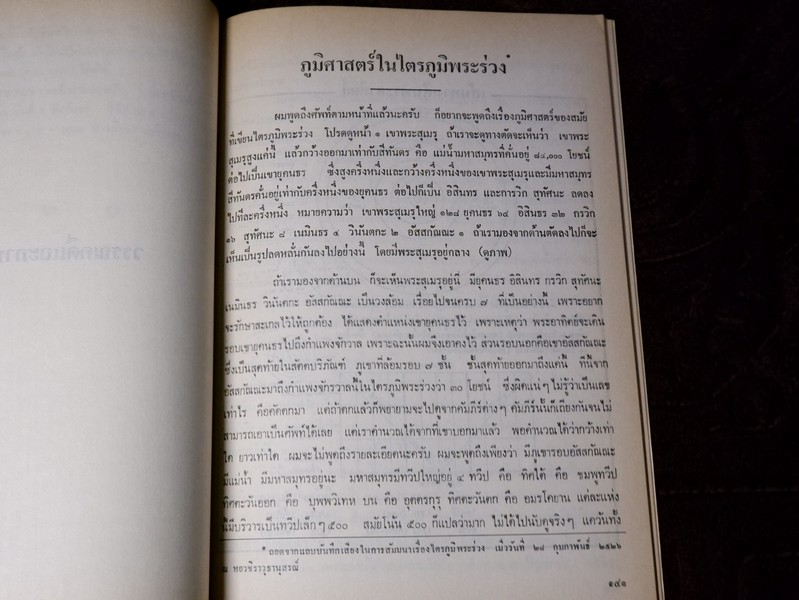 ภูมิศาสตร์ในไตรภูมิพระร่วง*
ผมพูดถึงศัพท์ตามหน้าที่แล้วนะครับ ก็อยากจะพูดถึงเรื่องภูมิศาสตร์ของสมัย
ที่เขียนไตรภูมิพระร่วง โปรดดูหน้า ๑ เขาพระสุเมรุ ถ้าเราจะดูทางตัดจะเห็นว่า เขาพระ
สุเมรุสูงแค่นี้ แล้วกว้างออกมาเท่ากับสีทันดร คือ แม่น้ำมหาสมุทรที่คั่นอยู่ ๘๔,๐๐๐ โยชน์
ต่อไปเป็นเขายุคนธร ซึ่งสูงครึ่งหนึ่งและกว้างครึ่งหนึ่งของเขาพระสุเมรุและมีมหาสมุทร
สีทันดรคั่นอยู่เท่ากับครึ่งหนึ่งของยุคนธร ต่อไปก็เป็น อิสินธร และการวิก สุทัศนะ ลดลง
ไปทีละครึ่งหนึ่ง หมายความว่า เขาพระสุเมรุใหญ่ ๑๒๘ ยุคนธร ๖๔ อิสินธร ๓๒ กรวิก
๑๖ สุทัศนะ ๘ เนมินธร ๔ วินันตกะ ๒ อัสสกัณณะ ๑ ถ้าเรามองจากด้านตัดลงไปก็จะ
เห็นเป็นรูปลดหลั่นกันลงไปอย่างนี้ โดยมีพระสุเมรุอยู่กลาง (ดูภาพ)
ถ้าเรามองจากด้านบน ก็จะเห็นพระสุเมรุอยู่นี่ มียุคนธร อิสินทร กรวิก สุทัศนะ
เนมินธร วินันตกะ อัสสกัณณะ เป็นวงล้อม เรื่อยไปจนครบ ๗ ที่เป็นอย่างนี้ เพราะอยาก
จะรักษาสะเกลไว้ให้ถูกต้อง ได้แสดงตำแหน่งเขายุคนธรไว้ เพราะเหตุว่า พระอาทิตย์จะเดิน
รอบเขายุคนธรไปถึงกำแพงจักรวาล เพราะฉะนั้นผมจึงเอาคงไว้ ส่วนรอบนอกคือเขาอัสสกัณณะ
ซึ่งเป็นสุดท้ายในสัตตบริภัณฑ์ ภูเขาที่ล้อมรอบ ๗ ชั้น ชั้นสุดท้ายออกมาถึงแค่นี้ ทีนี้จาก
อัสสกัณณะมาถึงกำแพงจักรวาลนี้ในไตรภูมิพระร่วงว่า ๓๐ โยชน์ ซึ่งผิดแน่ๆ ไม่รู้ว่าเป็นเลข
เท่าไร คือคัดตกมา แต่ถ้าตกแล้วก็พยายามจะไปดูจากคัมภีร์ต่างๆ คัมภีร์นั้นก็เถียงกันจนไม่
สามารถเอาเป็นศัพท์ได้เลย แต่เราคำนวณได้จากที่เขาบอกมาแล้ว พอคำนวณได้ว่ากว้างเท่า
ใด ยาวเท่าใด ผมจะไม่พูดถึงรายละเอียดนะครับ ผมจะพูดถึงเพียงว่า มีภูเขารอบอัสสกัณณะ
มีแม่น้ำ มีมหาสมุทรอยู่นะ มหาสมุทรมีทวีปใหญ่อยู่ ๔ ทวีป คือ ทิศใต้ คือ ชมพูทวีป
ทิศตะวันออก คือ บุพพวิเทห บน คือ อุตตรกุรุ ทิศตะวันตก คือ อมรโคยาน แต่ละแห่ง
นี้มีบริวารเป็นทวีปเล็กๆ ๕๐๐ สมัยโน้น ๕๐๐ ก็แปลว่ามาก ไม่ได้ไปนับดูจริงๆ แควันทั้ง
* ถอดจากแถบบันทึกเสียงในการสัมมนาเรื่องไตรภูมิพระร่วง เมื่อวันที่ ๒๘ กุมภาพันธ์ ๒๕๒๖
ณ หอวชิราวุธานุสรณ์
๑๔๑